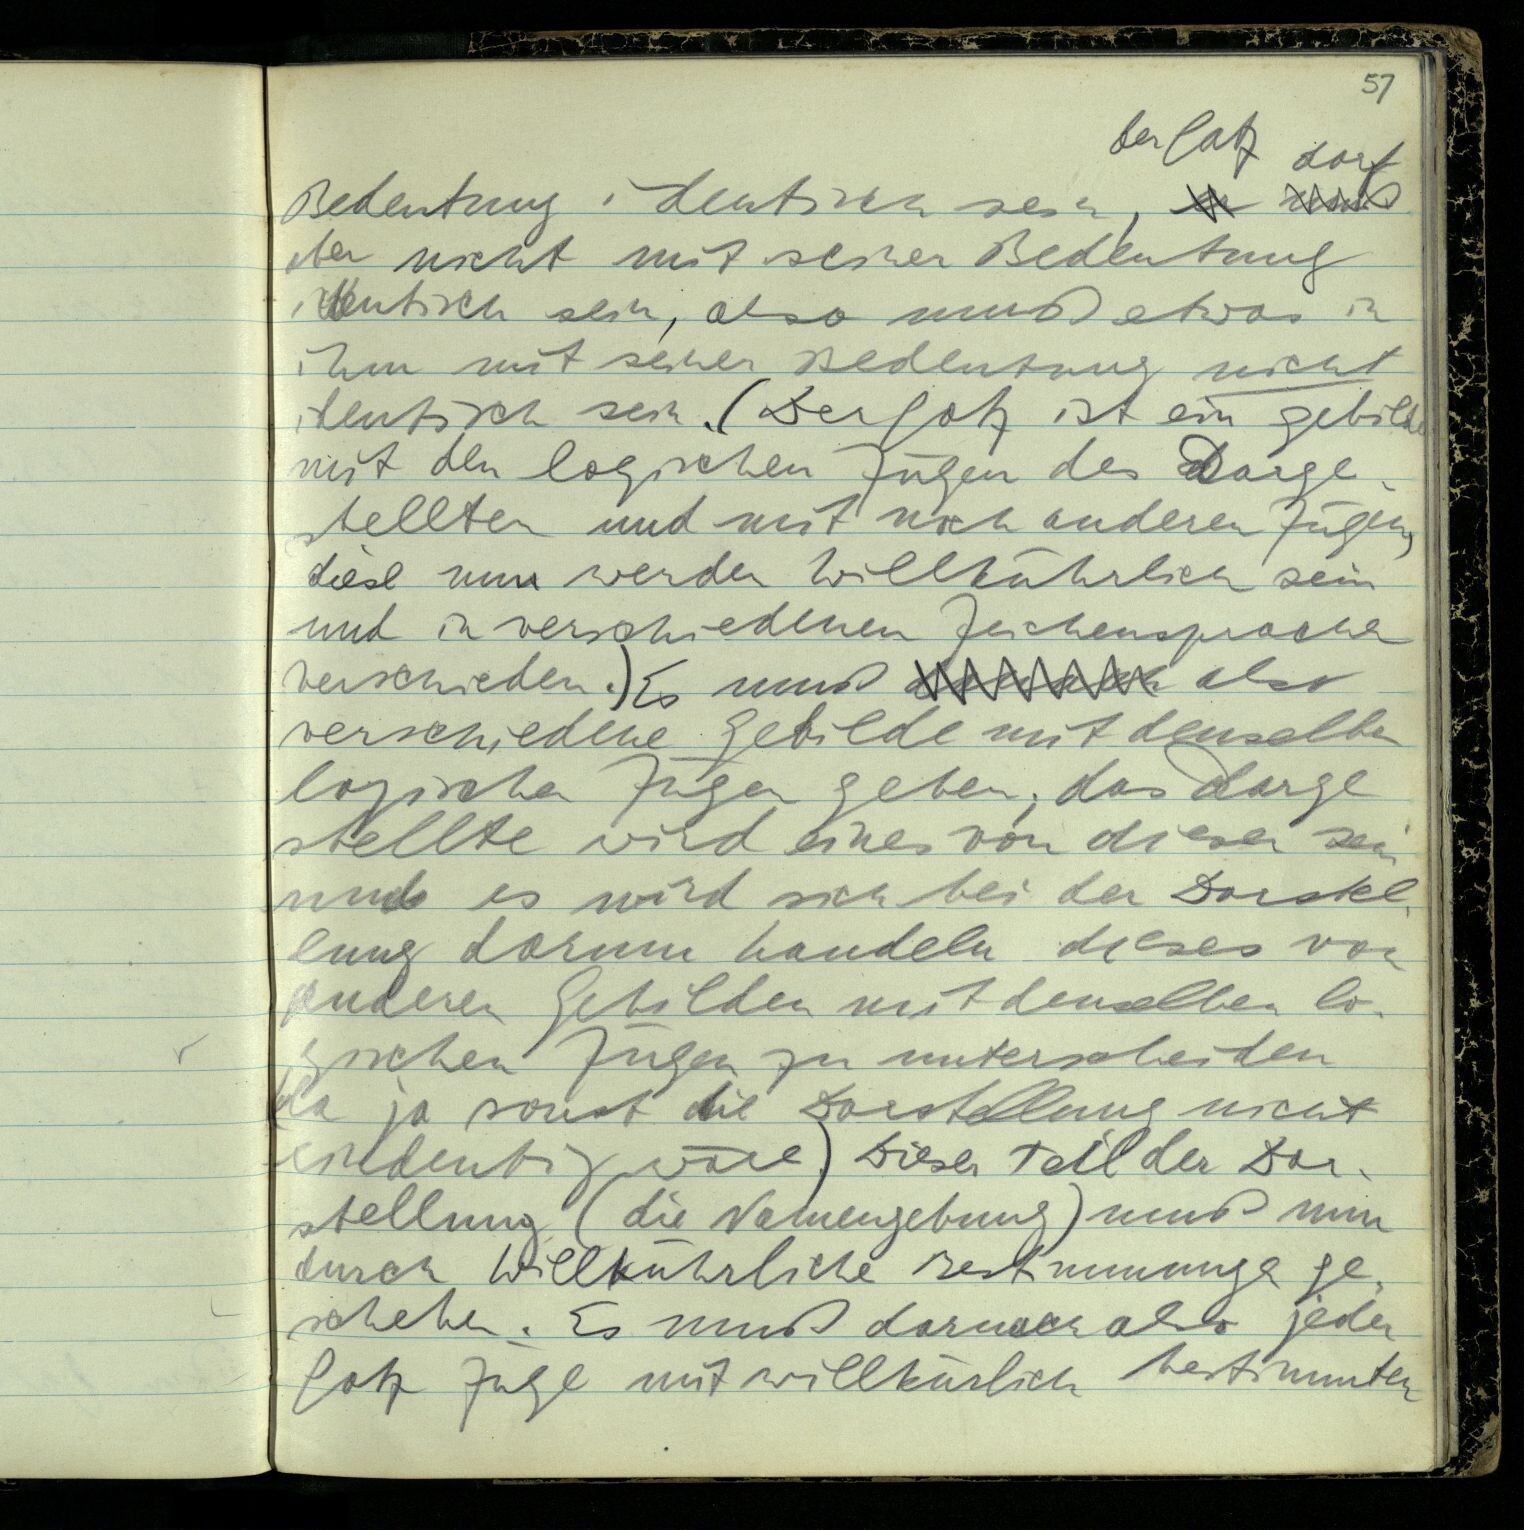 57
der Satz darf
Bedeutung identisch sein, er muß
aber nicht mit seiner Bedeutung
identisch sein, also muß etwas in
ihm mit seiner Bedeutung nicht
identisch sein. (Der Satz ist ein Gebilde
mit den logischen Zügen des Darge-
stellten und mit noch anderen Zügen,
diese nun werden willkührlich sein
und in verschiedenen Zeichensprachen
verschieden.) Es muß also
verschiedene Gebilde mit denselben
logischen Zügen geben; das Darge
stellte wird eines von diesen sein
und es wird sich bei der Darstel-
lung darum handeln dieses von
anderen Gebilden mit denselben lo-
gischen Zügen zu unterscheiden
(da ja sonst die Darstellung nicht
eindeutig wäre.) Dieser Teil der Dar-
stellung (die Namengebung) muß nun
durch willkührliche Bestimmungen ge-
schehen. Es muß darnach also jeder
Satz Züge mit willkürlich bestimmten